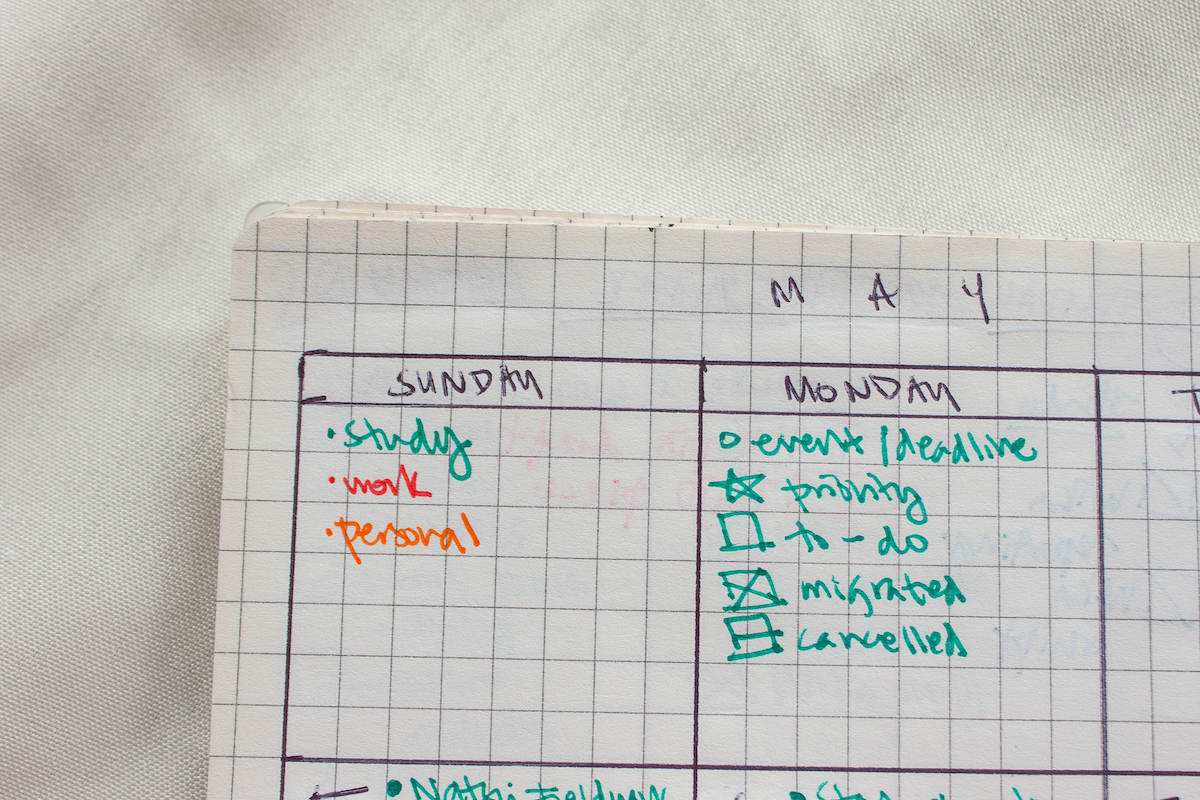 M A Y
SUNDAY
MONDAY
T
· study
· work
· personal
○ event / deadline
☆ priority
☐ to-do
☒ migrated
cancelled